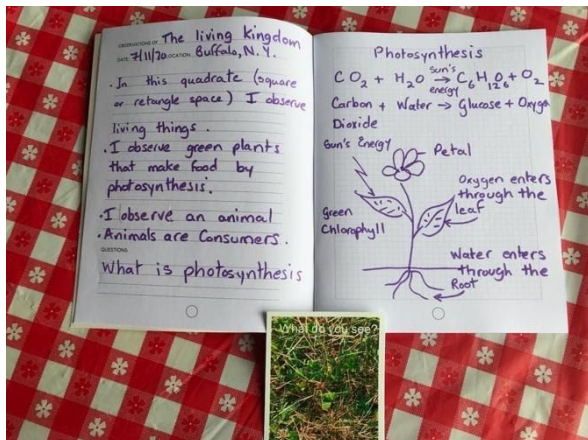 OBSERVATIONS OF The living kingdom
DATE 7/11/20 LOCATION Buffalo, N.Y.
• In this quadrate (square
or retangle space) I observe
living things.
• I observe green plants
that make food by
photosynthesis.
• I observe an animal
• Animals are Consumers.
QUESTIONS
What is photosynthesis
Photosynthesis
CO2 + H2O Sun's energy → C6H12O6 + O2
Carbon + Water → Glucose + Oxygen
Dioxide
Sun's Energy
Petal
Oxygen enters
through the
leaf
Green
Chlorophyll
Water enters
through the
Root
What do you see?